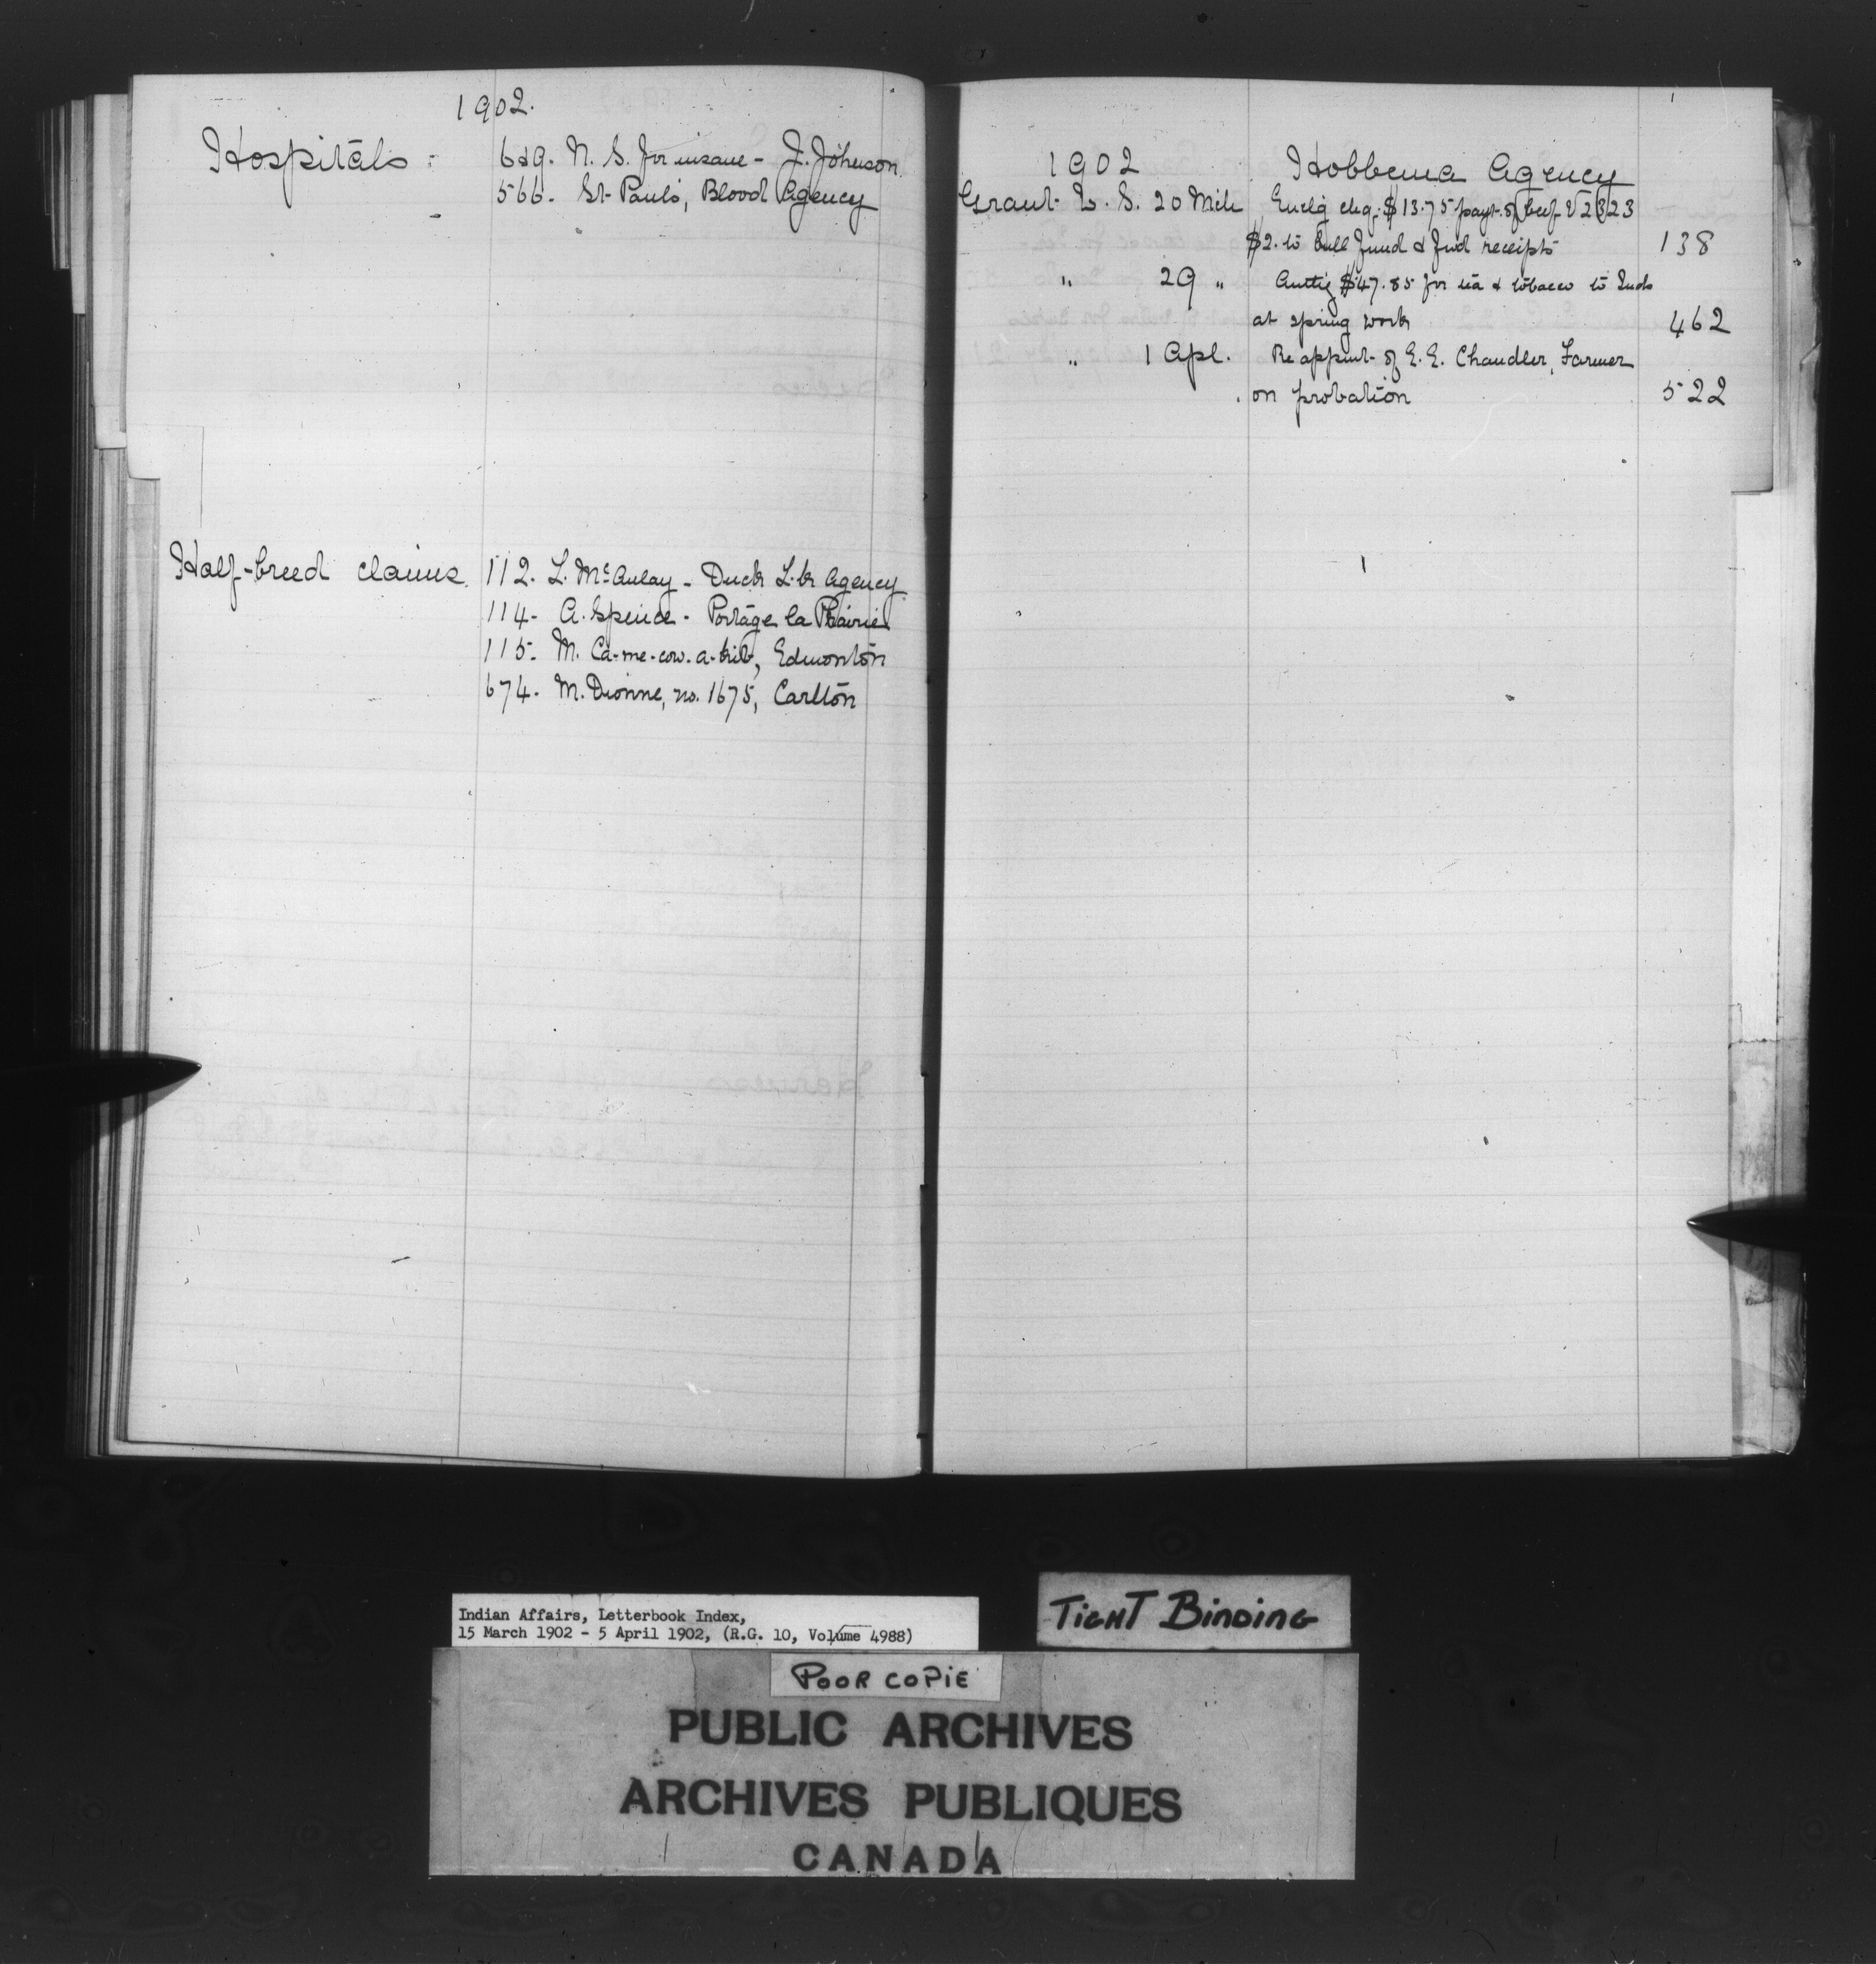 1902.
Hospitals: 629. N. S. for insane - J. Johnson.
566. St. Paul's, Blood Agency
Half-breed claims. 112. L. McAulay - Duck L.k Agency
114. A. Spence - Portage la Prairie
115. M. Ca-me-cow-a-, Edmonton
674. M. Dionne, no. 1675, Carlton
1902 Hobbema Agency
Grant W. S. 20 Mch Enclg chq. $13.75 payt. of beef V 2323
$2. to bull fund & fwd receipts 138
" 29 " Authg $47.85 for tea & tobacco to Inds
at spring work 462
" 1 Apl. Re appmt. of E. E. Chandler, Farmer
on probation 522
Indian Affairs, Letterbook Index,
15 March 1902 - 5 April 1902, (R.G. 10, Volume 4988)
TIGHT BINDING
POOR COPIE
PUBLIC ARCHIVES
ARCHIVES PUBLIQUES
CANADA